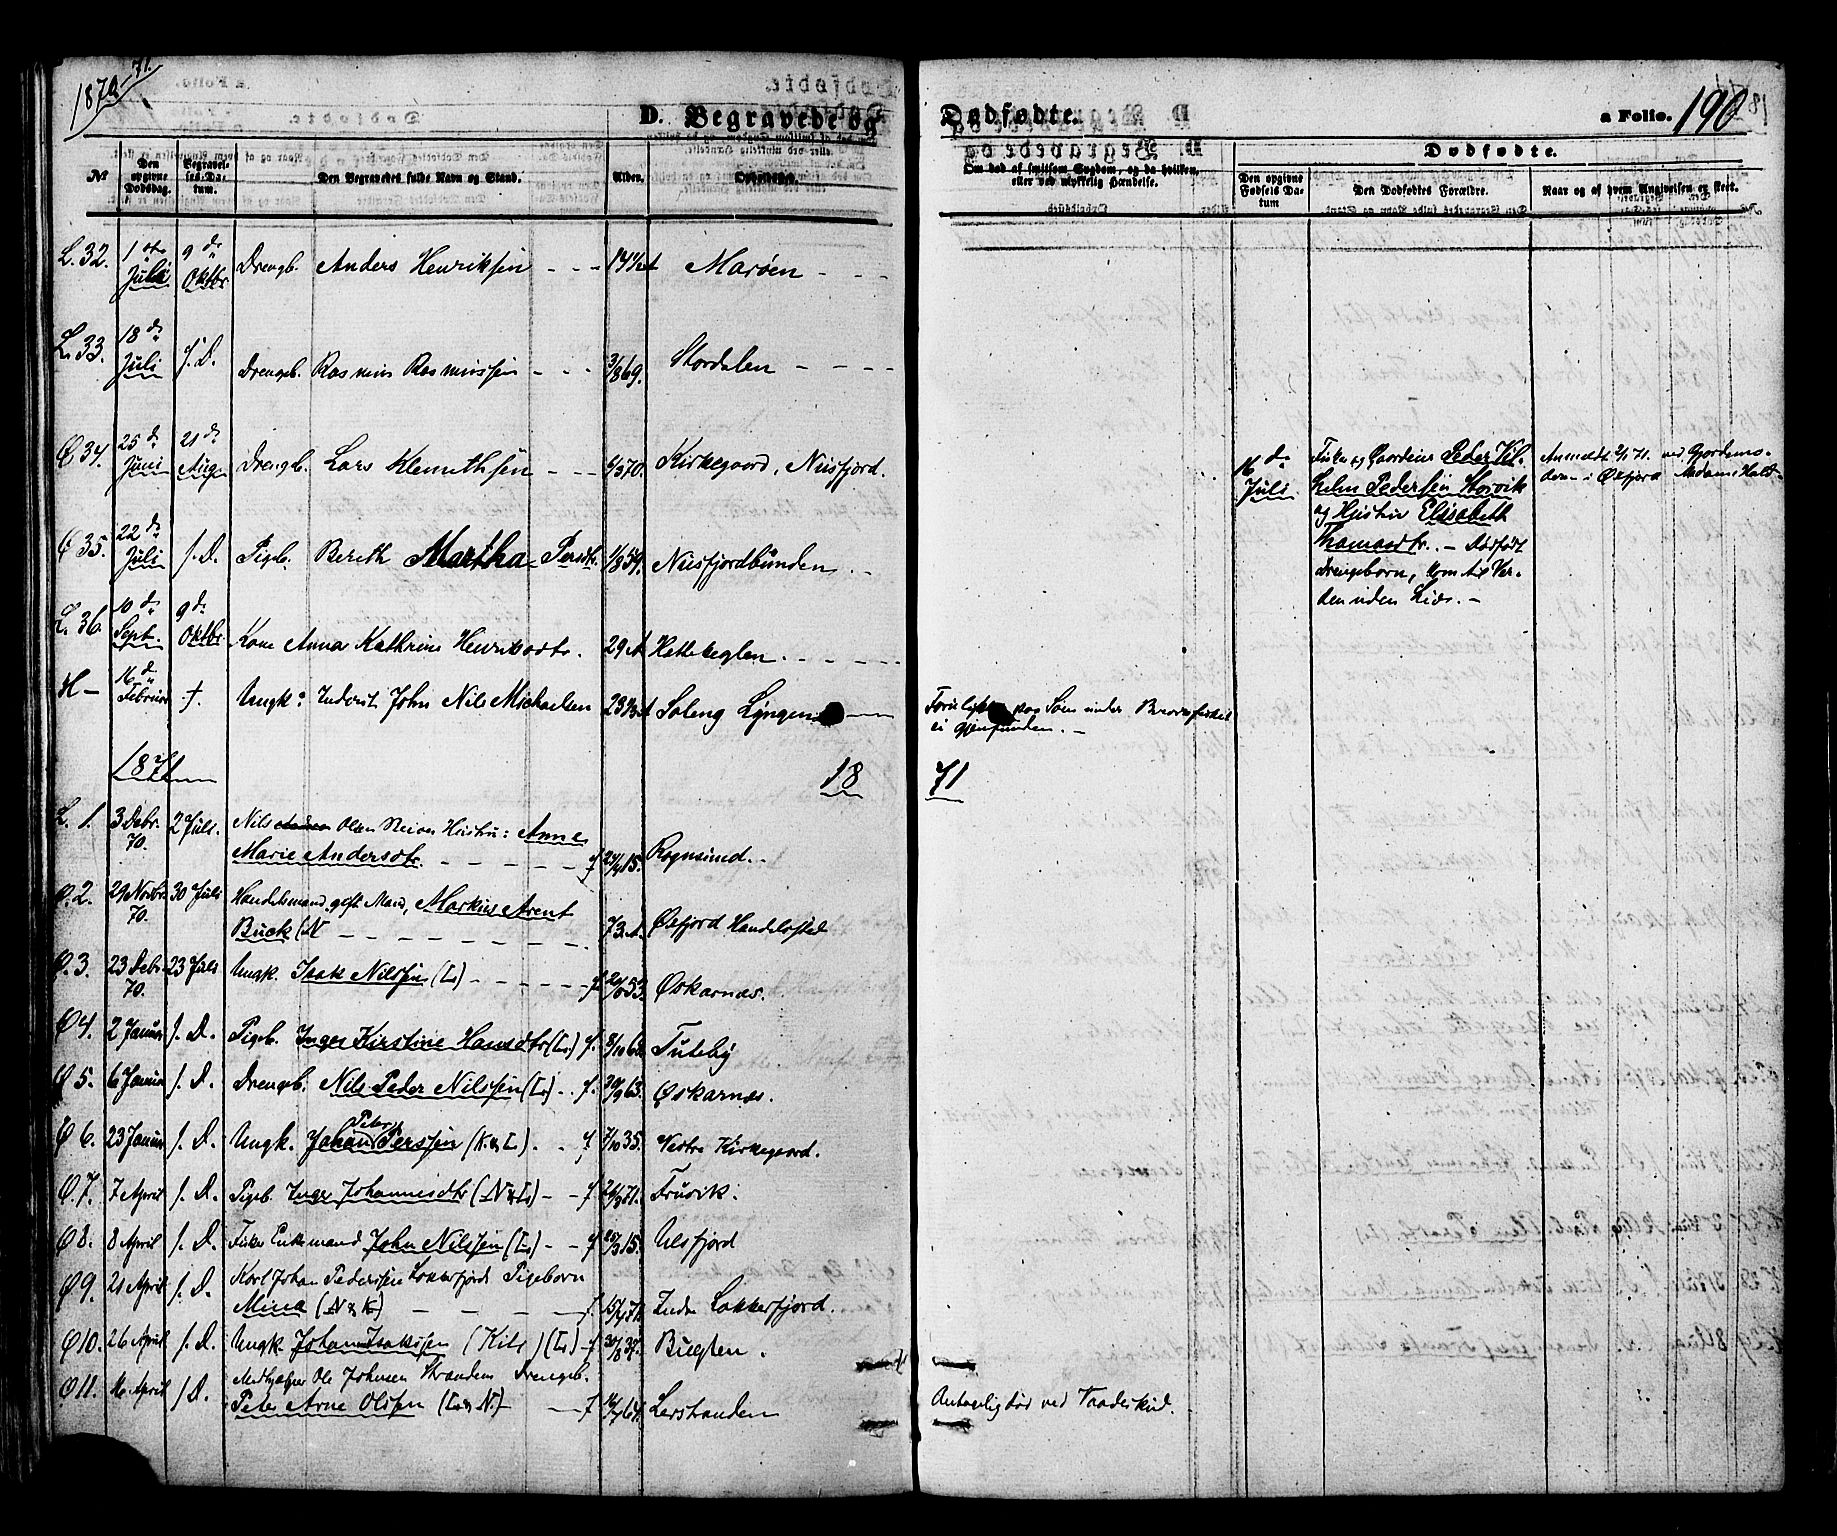 1870/71.
D. Begravede og
Dødfødte.
a Folio. 190
No
Den opgivne Dødsdag.
Begravelses-Datum.
Den Begravedes fulde Navn og Stand.
Alder.
Opholdsst.
Om død af smitsom Sygdom, og da hvilken, eller ved ulykkelig Hændelse.
Dødfødte.
Den opgivne Fødsels Datum
Den Dødfødtes Forældre.
Naar og af hvem Angivelsen er skeet.
L. 32. 1ste Juli 9de Oktbr Drengb. Anders Henriksen - - - 14 A Marøen - - - -
L. 33. 18de Juli s. D. Drengb. Rasmus Rasmussen - - - 3/8 69. Stordalen - - - -
Ø 34. 25de Juni 21de Aug Drengb. Lars Klemethsen 6/3 70. Kirkegaard, Nusfjord.
16de Juli
Fisker og Gaardeier Peder Vil-
helm Pedersen Storvik
og Hustru Elisabeth
Thomasdtr. - Dødfødt
Drengebarn, kom til Ver-
den uden Liv. -
Anmeldt 2/1 71. ved Gjordemo-
deren i Øxfjord Madam Hald-
Ø 35. 22de Juli s. D. Pigb. Bereth Martha Persdtr. 1/8 59. Nusfjordbunden -
L. 36. 10de Sept. 9de Oktbr Kone Anna Kathrine Henriksdtr. 29 A Hettekeglen. - - - -
H - 16de Februar +. Ungk: Inderst John Nils Michaelsen 23 A Soleng Lyngen -
Forulykket paa Søen under
ei gjenfunden. -
1871
18 71
L. 1. 3 Debr. 70. 2 Juli. Nils Olsen Reiers Hustru: Anne
Marie Andersdtr. - - - - f 24/4 15. Rognsund. -
Ø. 2. 29 Novbr 70. 30 Juli Handelsmand gift Mand, Markus Arent
Buck (N - - - - - - - 73 A. Øxfjord Handelssted
Ø. 3. 23 Debr. 70. 23 Juli Ungk. Isak Nilssen (L) - - - - - f 2/6 53. Øskarnæs.
Ø 4. 2 Januar s. D. Pigeb. Inger Kirstine Hansdtr (L.) f. 8/10 6 Tuteby
Ø 5. 6 Januar s. D. Drengeb. Nils Peder Nilssen (L) - . f. 29/9 63. Øskarnæs.
Ø 6. 23 Januar s. D. Ungk. Johan Peter Perssen (K & L) - f 7/10 35. Vestre Kirkegaard.
Ø 7. 7 April s. D. Pigeb. Inger Johannesdtr (N & L) - - f 71. Truvik.
Ø 8. 8 April s. D. Fisker Enkemand John Nilssen (L) - - f 3 15. Ulsfjord
Ø 9. 21 April s. D. Karl Johan Pederssen Lokkerfjords Pigebarn
Mina (N & K) - - - - f. 15/4 71. Indre Lokkerfjord.
Ø 10. 26 April s. D. Ungk. Johan Isakssen (Kils) (L) - f 30/8 37. Bugten.
Ø 11. 16 April s D. Medhjelper Ole Johnsen Stranden Drengeb.
Peter Arne Olssen (L & N) - - f 14/4 64. Lerstranden
Antagelig død ved Vaadeskud.